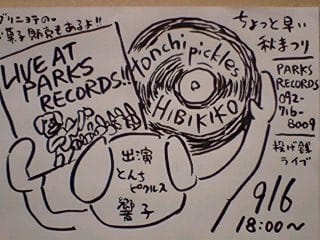 グリニヨテの。
菓子販売もあるよ!!
LIVE AT
PARKS
RECORDS!!
tonchi pickles
HIBIKIKO
ちょっと早い
秋まつり
PARKS
RECORDS
092-
716-
8009
投げ銭
ライブ
出演
とんち
ピクルス
響子
9/6
18:00〜